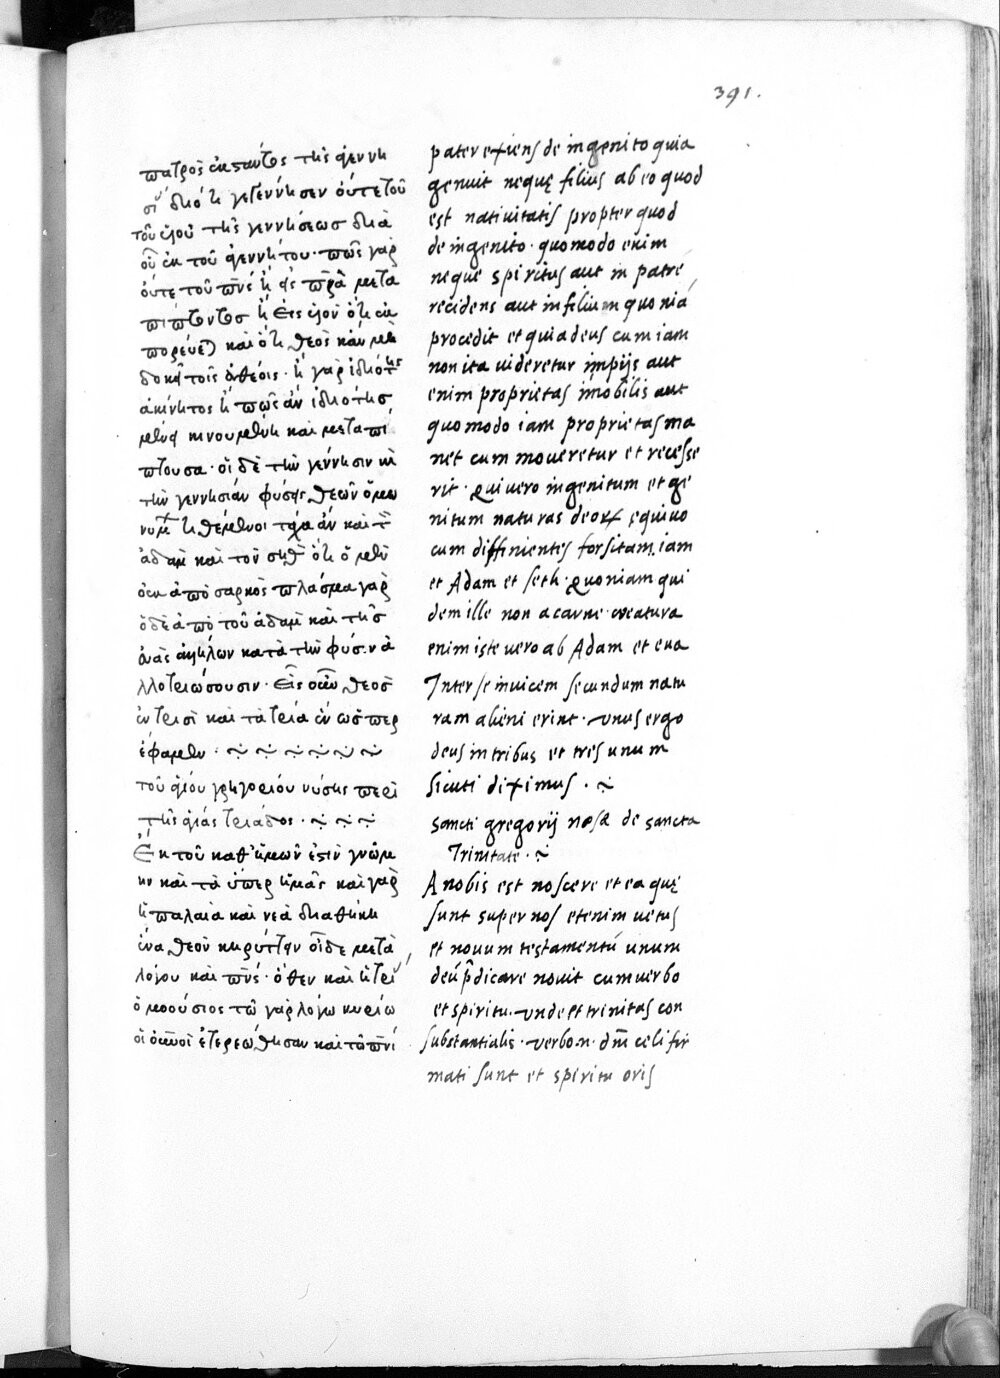 391.
πατρὸς ἐκστάντος τῆς ἀγεννη
σί διότι γεγέννηκεν οὔτε τοῦ
τοῦ υἱοῦ τῆς γεννήσεως διὰ
οὗ ἐκ τοῦ ἀγεννήτου· πῶς γὰρ
οὔτε τοῦ πνς ἢ εἰς πρα μετα
πίπτοντος ἢ εἰς υἱὸν ὅτι ἐκ
πορεύε) καὶ ὅτι θεὸς κἂν μὴ
δοκῆ τοῖς ἀθέοις· ἢ γὰρ ἰδιότης
ἀκίνητος ἢ πῶς ἂν ἰδιότης
μένοι κινουμένη καὶ μεταπί
πτουσα· οἱ δὲ τὴν γέννησιν καὶ
τὴν γεννησίαν φύσεις θεῶν ὁμω
τιθέμενοι τάχα ἂν καὶ τ
ἀδαμ καὶ τὸν σηθ ὅτι ὁ μὲν
οὐκ ἀπὸ σαρκὸς πλάσμα γὰρ
ὁ δὲ ἀπὸ τοῦ ἀδαμ καὶ τῆς
εὔας ἀλλήλων κατὰ τὴν φύσιν ἀ
λλοτριώσουσιν· Εἷς οὖν θεὸς
ἐν τρισὶ καὶ τὰ τρία ἓν ὥσπερ
ἔφαμεν ·
τοῦ ἁγίου γρηγορίου νύσης περὶ
τῆς ἁγίας τριάδος ·
Ἐκ τοῦ καθ' ἡμῶν ἐστὶν γνῶμε
κν καὶ τὰ ὑπερ ἡμᾶς καὶ γὰρ
ἡ παλαιὰ καὶ νέα διαθήκη
ἕνα θεὸν κηρύττειν οἶδε μετὰ
λόγου καὶ πνς· ὅθεν καὶ ἡ τρι
ὁμοούσιος τῶ γὰρ λόγω κυρίω
οἱ οὐνοὶ ἐτερεώθησαν καὶ τῶ πνι
pater exiens de ingenito quia
genuit neque filius ab eo quod
est nativitatis propter quod
de ingenito · quomodo enim
neque spiritus aut in patre
recidens aut in filium quoniã
procedit et quia deus cum iam
non ita videretur impijs aut
enim proprietas imobilis aut
quomodo iam proprietas ma
net cum moveretur et recesse
rit · Qui vero ingenitum et ge
nitum naturas deorum equivo
cum diffinientes forsitam iam
et Adam et seth · Quoniam qui
dem ille non a carne creatura
enim iste vero ab Adam et eva
Inter se invicem secundum natu
ram alieni erint · Unus ergo
deus in tribus et tres unum
sicuti diximus ·
sancti gregorij nose de sancta
Trinitate ·
A nobis est noscere et ea quę
sunt super nos etenim vetus
et novum testamentũ unum
deũ p̃dicare novit cum verbo
et spiritu. unde et trinitas con
substantialis · verbo.n. dñi celi fir
mati sunt et spiritu oris